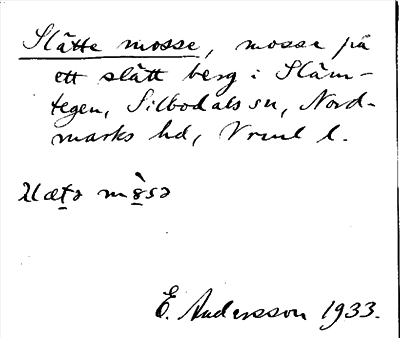 Slätte mosse, mosse på
ett slätt berg i Släm-
tegen, Silbodals sn, Nord-
marks hd, Vrml l.
E. Andersson 1933.